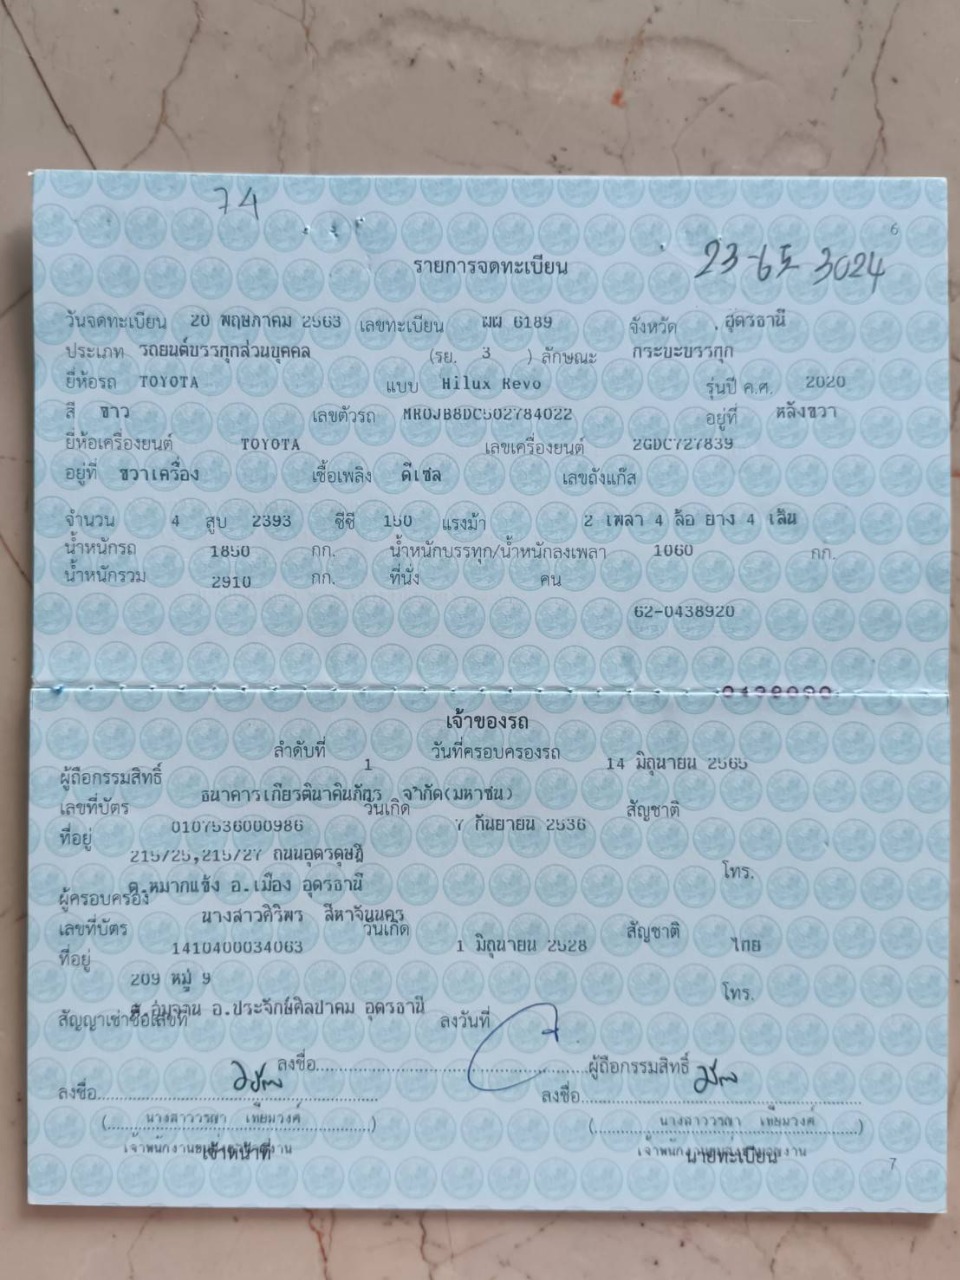 74
6
รายการจดทะเบียน
23-65 3024
วันจดทะเบียน 20 พฤษภาคม 2563 เลขทะเบียน ผผ 6189 จังหวัด อุดรธานี
ประเภท รถยนต์บรรทุกส่วนบุคคล (รย. 3 ) ลักษณะ กระบะบรรทุก
ยี่ห้อรถ TOYOTA แบบ Hilux Revo รุ่นปี ค.ศ. 2020
สี ขาว เลขตัวรถ MR0JB8DC502784022 อยู่ที่ หลังขวา
ยี่ห้อเครื่องยนต์ TOYOTA เลขเครื่องยนต์ 2GDC727839
อยู่ที่ ขวาเครื่อง เชื้อเพลิง ดีเซล เลขถังแก๊ส
จำนวน 4 สูบ 2393 ซีซี 150 แรงม้า 2 เพลา 4 ล้อ ยาง 4 เส้น
น้ำหนักรถ 1850 กก. น้ำหนักบรรทุก/น้ำหนักลงเพลา 1060 กก.
น้ำหนักรวม 2910 กก. ที่นั่ง คน
62-0438920
เจ้าของรถ
ลำดับที่ 1 วันที่ครอบครองรถ 14 มิถุนายน 2565
ผู้ถือกรรมสิทธิ์ ธนาคารเกียรตินาคินภัทร จำกัด(มหาชน)
เลขที่บัตร 0107536000986 วันเกิด 7 กันยายน 2536 สัญชาติ
ที่อยู่ 215/25,215/27 ถนนอุดรดุษฎี
ต.หมากแข้ง อ.เมือง อุดรธานี โทร.
ผู้ครอบครอง นางสาวศิริพร สีหาจันนคร
เลขที่บัตร 1410400034063 วันเกิด 1 มิถุนายน 2528 สัญชาติ ไทย
ที่อยู่ 209 หมู่ 9
ต.อุ่มจาน อ.ประจักษ์ศิลปาคม อุดรธานี โทร.
สัญญาเช่าซื้อเลขที่ ลงวันที่
ลงชื่อ ผู้ถือกรรมสิทธิ์
ลงชื่อ ลงชื่อ
(นางสาววรญา เทียมวงศ์) (นางสาววรญา เทียมวงศ์)
เจ้าหน้าที่ นายทะเบียน
7